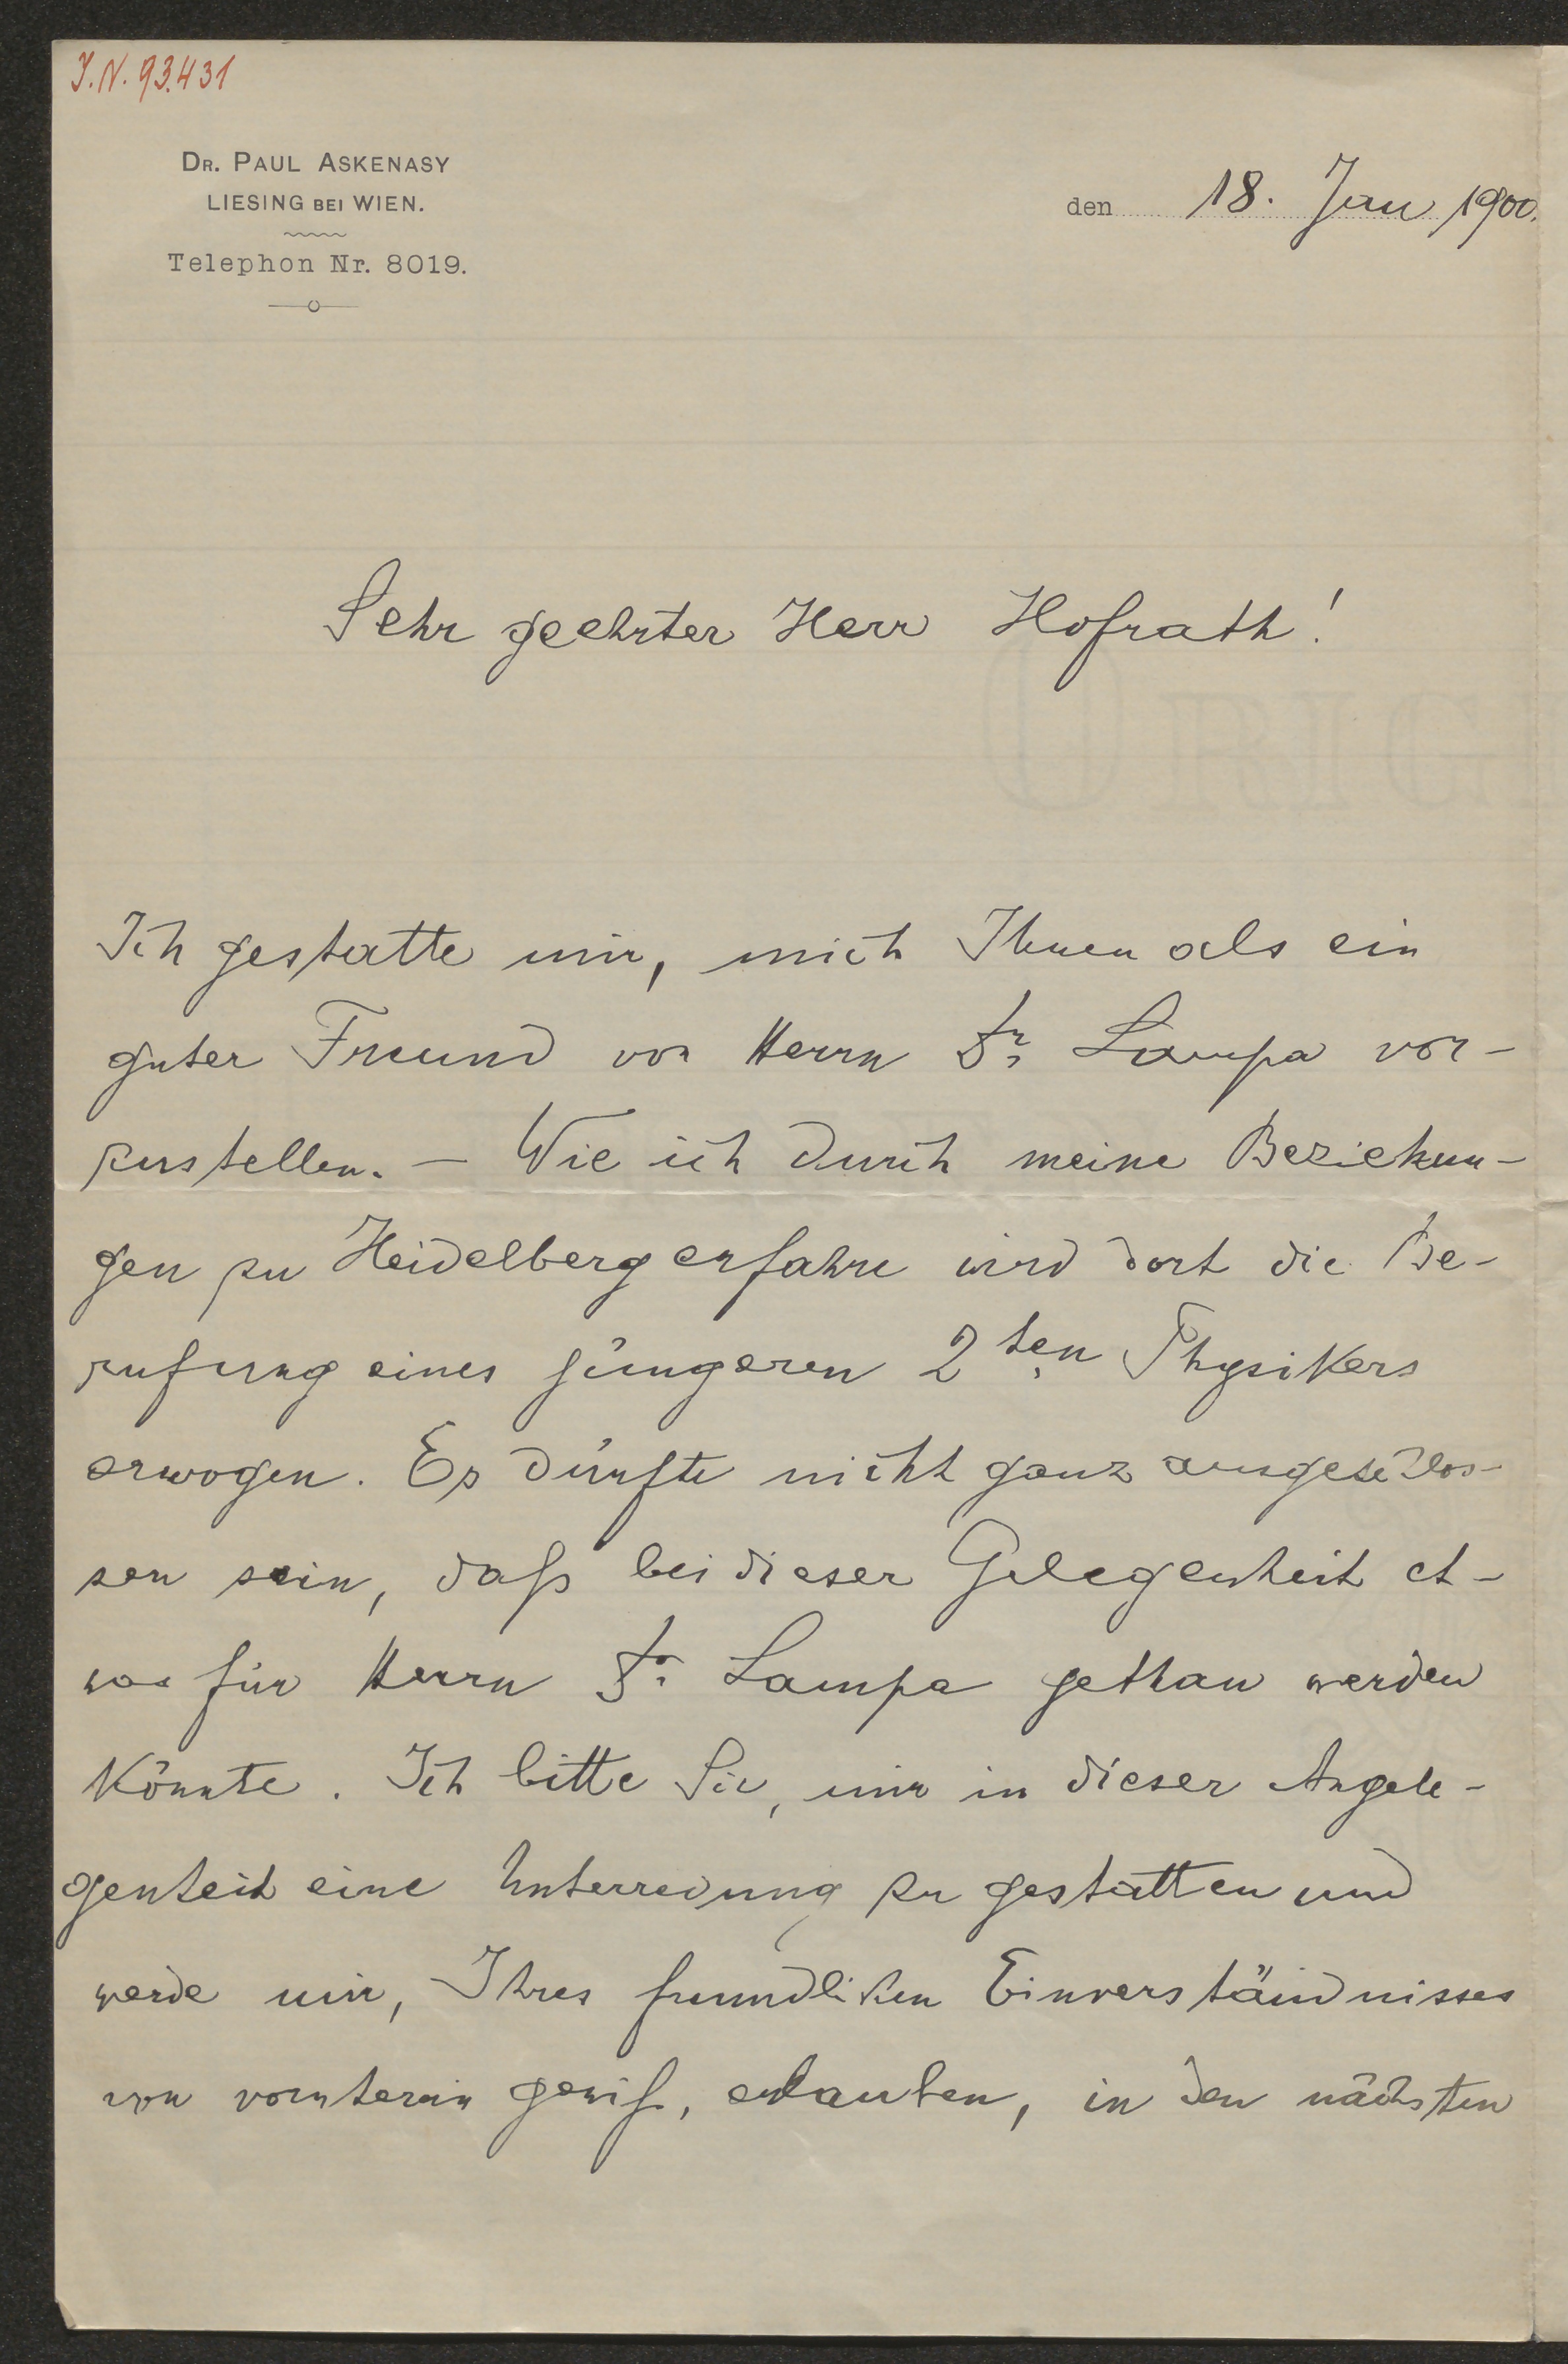 J.N. 93.431
DR. PAUL ASKENASY
LIESING BEI WIEN.
Telephon Nr. 8019.
den 18. Jan 1900.
Sehr geehrter Herr Hofrath!
Ich gestatte mir, mich Ihnen als ein
guter Freund von Herrn Dr. Lampa vor-
zustellen. — Wie ich durch meine Beziehun-
gen zu Heidelberg erfahre wird dort die Be-
rufung eines jüngeren 2ten Physikers
erwogen. Es dürfte nicht ganz ausgeschlos-
sen sein, daß bei dieser Gelegenheit et-
was für Herrn Dr. Lampa gethan werden
könnte. Ich bitte Sie, mir in dieser Angele-
genheit eine Unterredung zu gestatten und
werde mir, Ihres freundlichen Einverständnisses
von vornherein gewiß, erlauben, in den nächsten